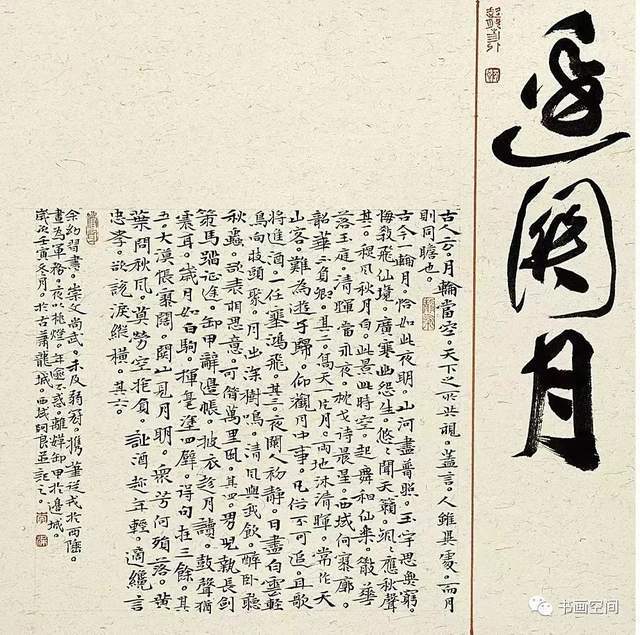 邊關月
古人言。月輪當空。天下之所共視。蓋言。人雖異處。而月
則同瞻也。
古今一輪月。恰如此夜明。山河盡普照。玉宇思無窮。
悔教飛仙境。廣寒幽怨生。悠悠聞天籟。颯颯應秋聲。
其一。稷風秋月白。此景此時空。起舞和仙樂。散華
落玉庭。清暉當永夜。枕戈待晨星。西域何寥廓。
韶華負卿。其二。為天一片月。兩地沐清暉。常作天
山客。難為遊子歸。仰觀月中事。凡俗不可追。且歌
將進酒。一任塞鴻飛。其三。夜闌人初靜。日盡白雲輕
鳥向枝頭聚。月出深樹鳴。清風與我飲。醉臥聽
秋蟲。欲表相思意。可借萬里風。其四。男兒執長劍
策馬踏征途。卸甲辭邊帳。披衣趁月讀。鼓聲猶
震耳。歲月如白駒。揮毫塗四壁。得句在三餘。其
五。大漠悵寥闊。關山見月明。眾芳何殞落。黃
葉問秋風。莫勞空負。酒趁年輕。適纔言
忠孝。欲說淚縱橫。其六。
余幼習書。崇文尚武。未及弱冠。攜筆從戎於西陲。
晝為軍務。夜以挑燈。年逾不惑。離卸甲於邊城。
歲次壬寅冬月。於古蕭龍城。西域阿良並記之。
书画空间